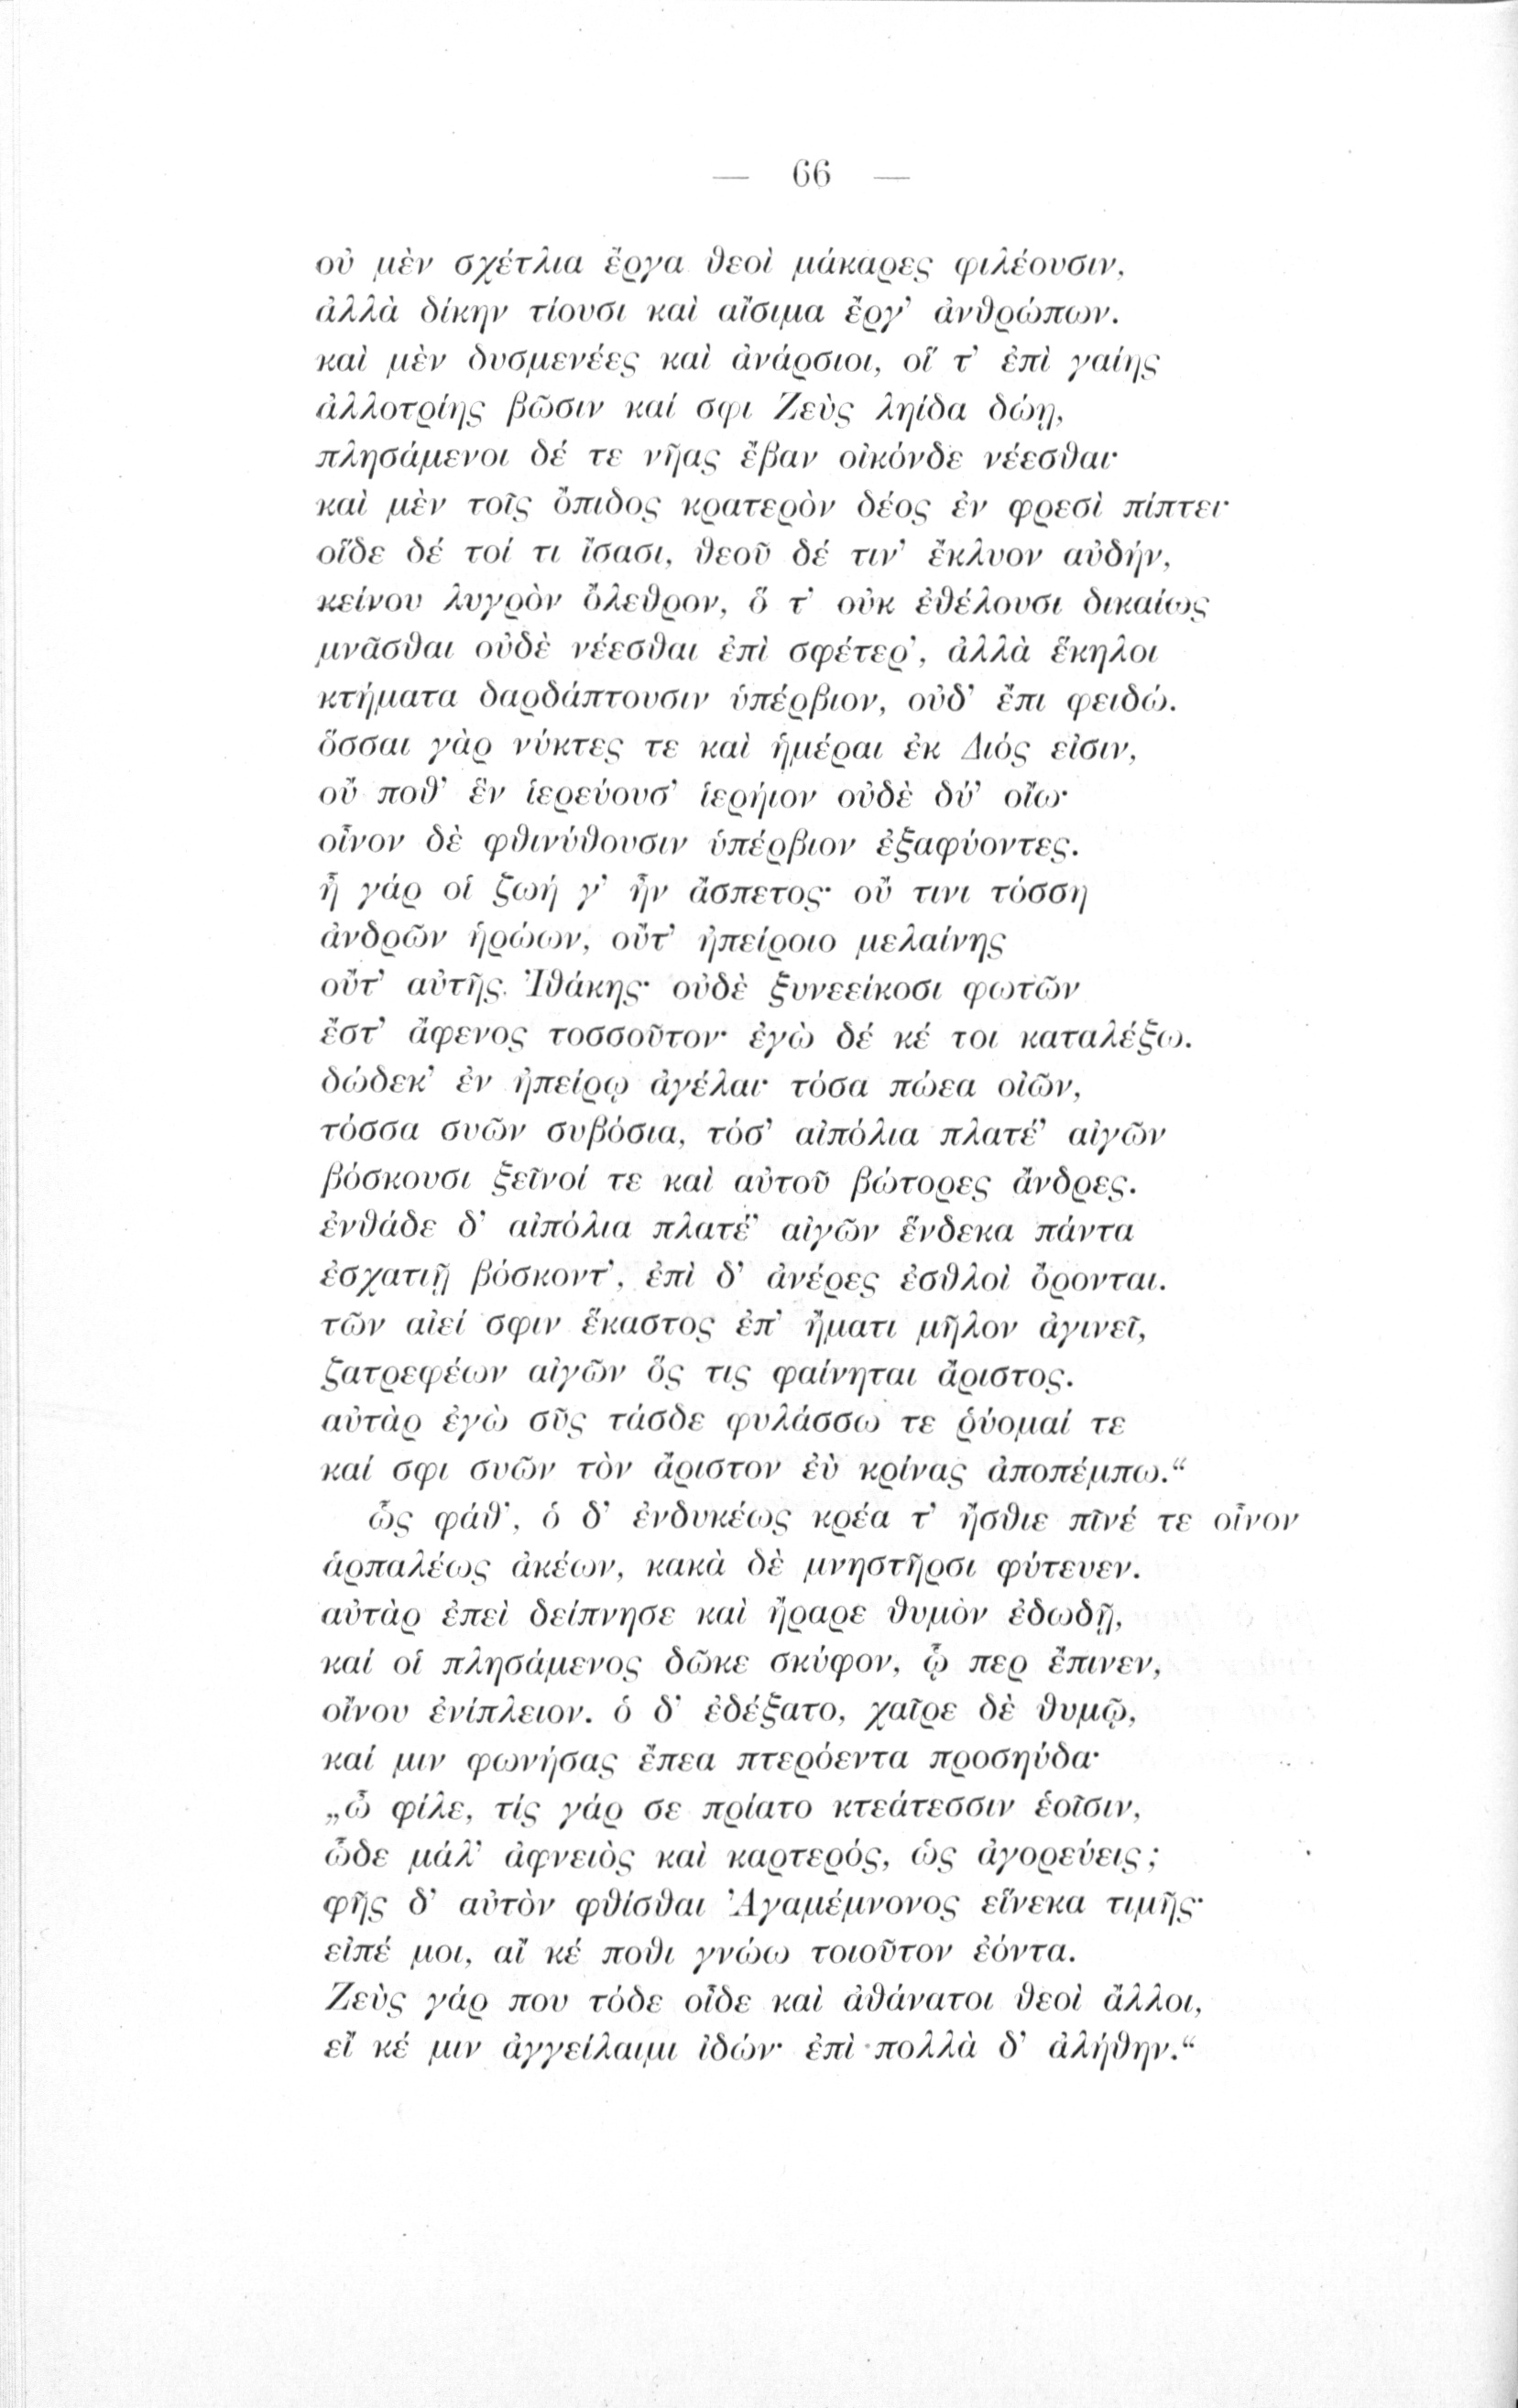 — 66 —
οὐ μὲν σχέτλια ἔργα θεοὶ μάκαρες φιλέουσιν,
ἀλλὰ δίκην τίουσι καὶ αἴσιμα ἔργ’ ἀνθρώπων.
καὶ μὲν δυσμενέες καὶ ἀνάρσιοι, οἵ τ’ ἐπὶ γαίης
ἀλλοτρίης βῶσιν καί σφι Ζεὺς ληίδα δώῃ,
πλησάμενοι δέ τε νῆας ἔβαν οἰκόνδε νέεσθαι·
καὶ μὲν τοῖς ὄπιδος κρατερὸν δέος ἐν φρεσὶ πίπτει·
οἵδε δέ τοί τι ἴσασι, θεοῦ δέ τιν’ ἔκλυον αὐδήν,
κείνου λυγρὸν ὄλεθρον, ὅ τ’ οὐκ ἐθέλουσι δικαίως
μνᾶσθαι οὐδὲ νέεσθαι ἐπὶ σφέτερ’, ἀλλὰ ἕκηλοι
κτήματα δαρδάπτουσιν ὑπέρβιον, οὐδ’ ἔπι φειδώ.
ὅσσαι γὰρ νύκτες τε καὶ ἡμέραι ἐκ Διός εἰσιν,
οὔ ποθ’ ἓν ἱερεύουσ’ ἱερήιον οὐδὲ δύ’ οἴω·
οἶνον δὲ φθινύθουσιν ὑπέρβιον ἐξαφύοντες.
ἦ γάρ οἱ ζωή γ’ ἦν ἄσπετος· οὔ τινι τόσση
ἀνδρῶν ἡρώων, οὔτ’ ἠπείροιο μελαίνης
οὔτ’ αὐτῆς Ἰθάκης· οὐδὲ ξυνεείκοσι φωτῶν
ἔστ’ ἄφενος τοσσοῦτον· ἐγὼ δέ κέ τοι καταλέξω.
δώδεκ’ ἐν ἠπείρῳ ἀγέλαι· τόσα πώεα οἰῶν,
τόσσα συῶν συβόσια, τόσ’ αἰπόλια πλατέ’ αἰγῶν
βόσκουσι ξεῖνοί τε καὶ αὐτοῦ βώτορες ἄνδρες.
ἐνθάδε δ’ αἰπόλια πλατέ’ αἰγῶν ἕνδεκα πάντα
ἐσχατιῇ βόσκοντ’, ἐπὶ δ’ ἀνέρες ἐσθλοὶ ὄρονται.
τῶν αἰεί σφιν ἕκαστος ἐπ’ ἤματι μῆλον ἀγινεῖ,
ζατρεφέων αἰγῶν ὅς τις φαίνηται ἄριστος.
αὐτὰρ ἐγὼ σῦς τάσδε φυλάσσω τε ῥύομαί τε
καί σφι συῶν τὸν ἄριστον ἐὺ κρίνας ἀποπέμπω.“
ὣς φάθ’, ὁ δ’ ἐνδυκέως κρέα τ’ ἤσθιε πῖνέ τε οἶνον
ἁρπαλέως ἀκέων, κακὰ δὲ μνηστῆρσι φύτευεν.
αὐτὰρ ἐπεὶ δείπνησε καὶ ἤραρε θυμὸν ἐδωδῇ,
καί οἱ πλησάμενος δῶκε σκύφον, ᾧ περ ἔπινεν,
οἴνου ἐνίπλειον. ὁ δ’ ἐδέξατο, χαῖρε δὲ θυμῷ,
καί μιν φωνήσας ἔπεα πτερόεντα προσηύδα·
„ὦ φίλε, τίς γάρ σε πρίατο κτεάτεσσιν ἑοῖσιν,
ὧδε μάλ’ ἀφνειὸς καὶ καρτερός, ὡς ἀγορεύεις;
φῆς δ’ αὐτὸν φθίσθαι Ἀγαμέμνονος εἵνεκα τιμῆς·
εἰπέ μοι, αἴ κέ ποθι γνώω τοιοῦτον ἐόντα.
Ζεὺς γάρ που τόδε οἶδε καὶ ἀθάνατοι θεοὶ ἄλλοι,
εἴ κέ μιν ἀγγείλαιμι ἰδών· ἐπὶ πολλὰ δ’ ἀλήθην.“